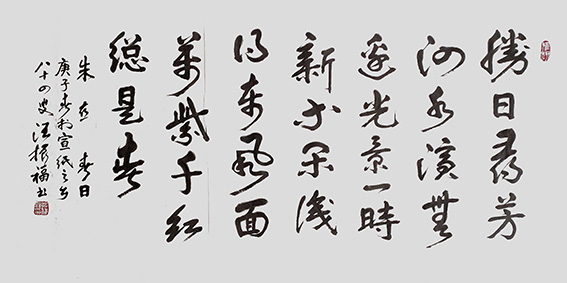 勝日尋芳
泗水濱無
邊光景一時
新等閑識
得東風面
萬紫千紅
總是春
朱熹 春日
庚子春於宣紙之鄉
八十四叟汪振福書